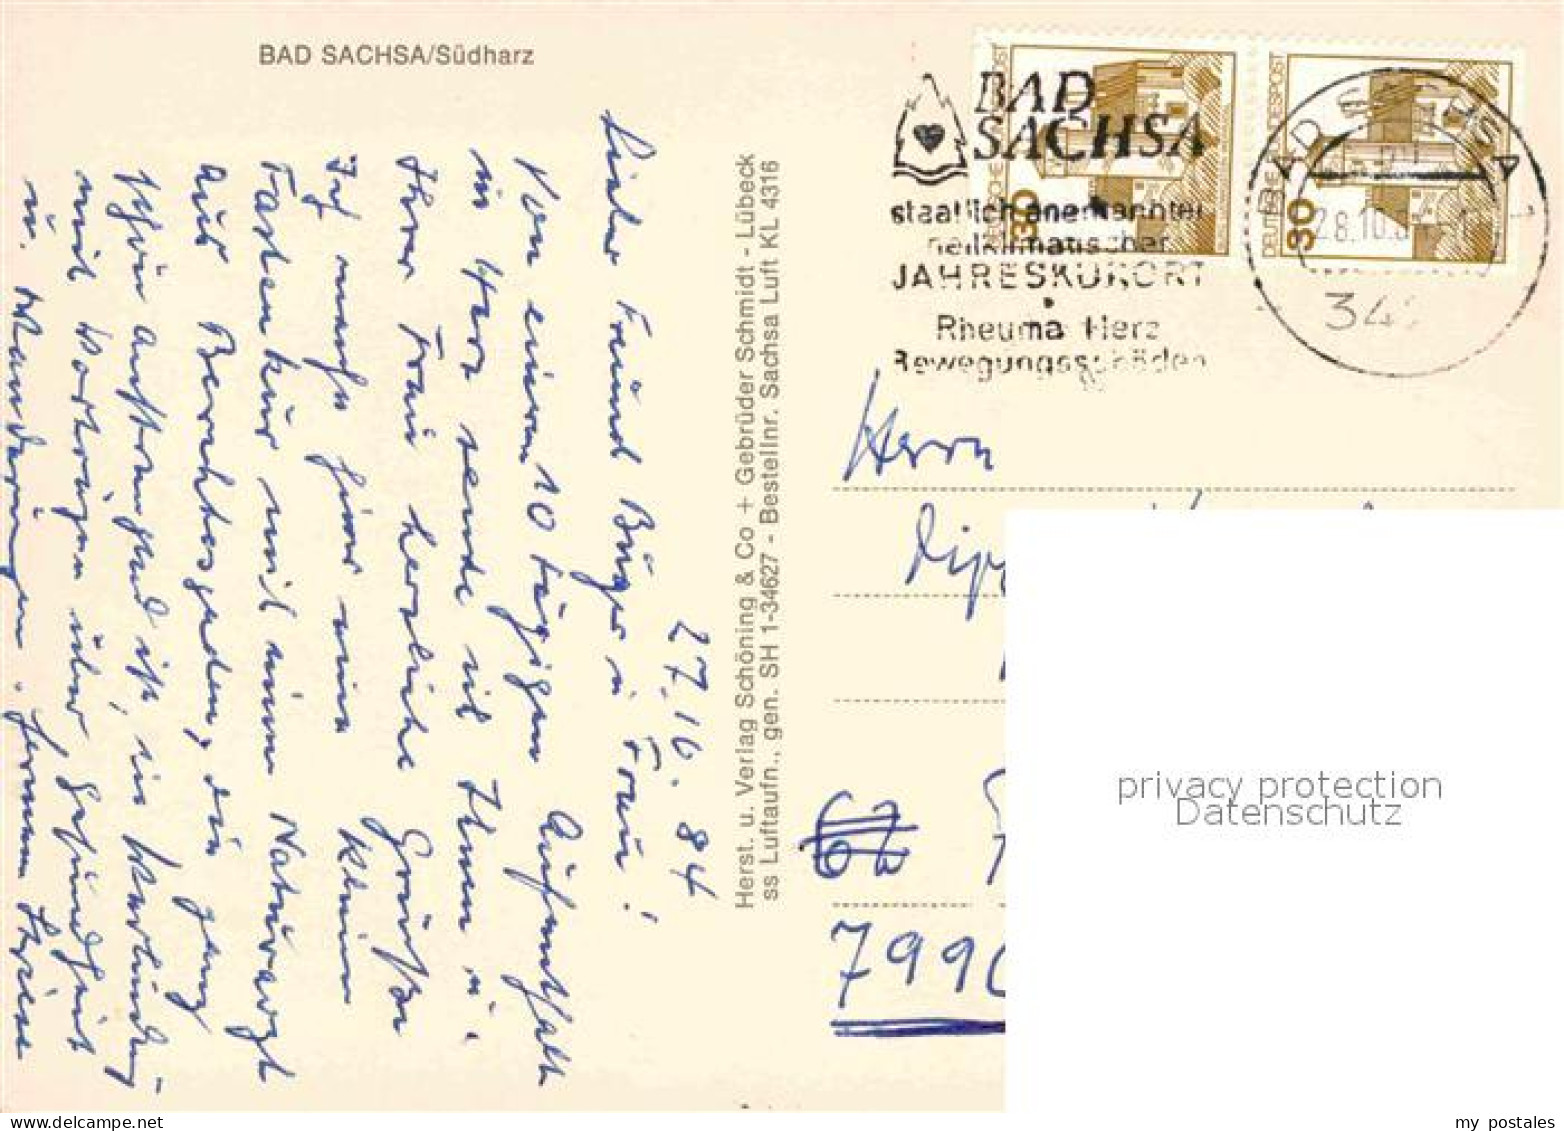 BAD SACHSA/Südharz
27.10.84
Lieber Freund Bürger u. Frau!
Von einem 10 tägigen Aufenthalt
im Harz sende ich Ihnen u.
Ihrer Frau herzliche Grüße
Ich mache hier eine kleine
Fastenkur mit einem Naturarzt
aus Berchtesgaden, die ganz
schön anstrengend ist, in Verbindung
mit Vorträgen über Gesundheit
u. Wanderungen.
Herst. u. Verlag Schöning & Co + Gebrüder Schmidt - Lübeck
ss Luftaufn., gen. SH 1-34627 - Bestellnr. Sachsa Luft KL 4316
BAD
SACHSA
staatlich anerkannter
heilklimatischer
JAHRESKURORT
Rheuma Herz
Bewegungsschäden
DEUTSCHE BUNDESPOST
30
DEUTSCHE BUNDESPOST
30
BAD SACHSA 1
28.10.
34
Herrn
Dipl
62
7990
privacy protection
Datenschutz
my postales